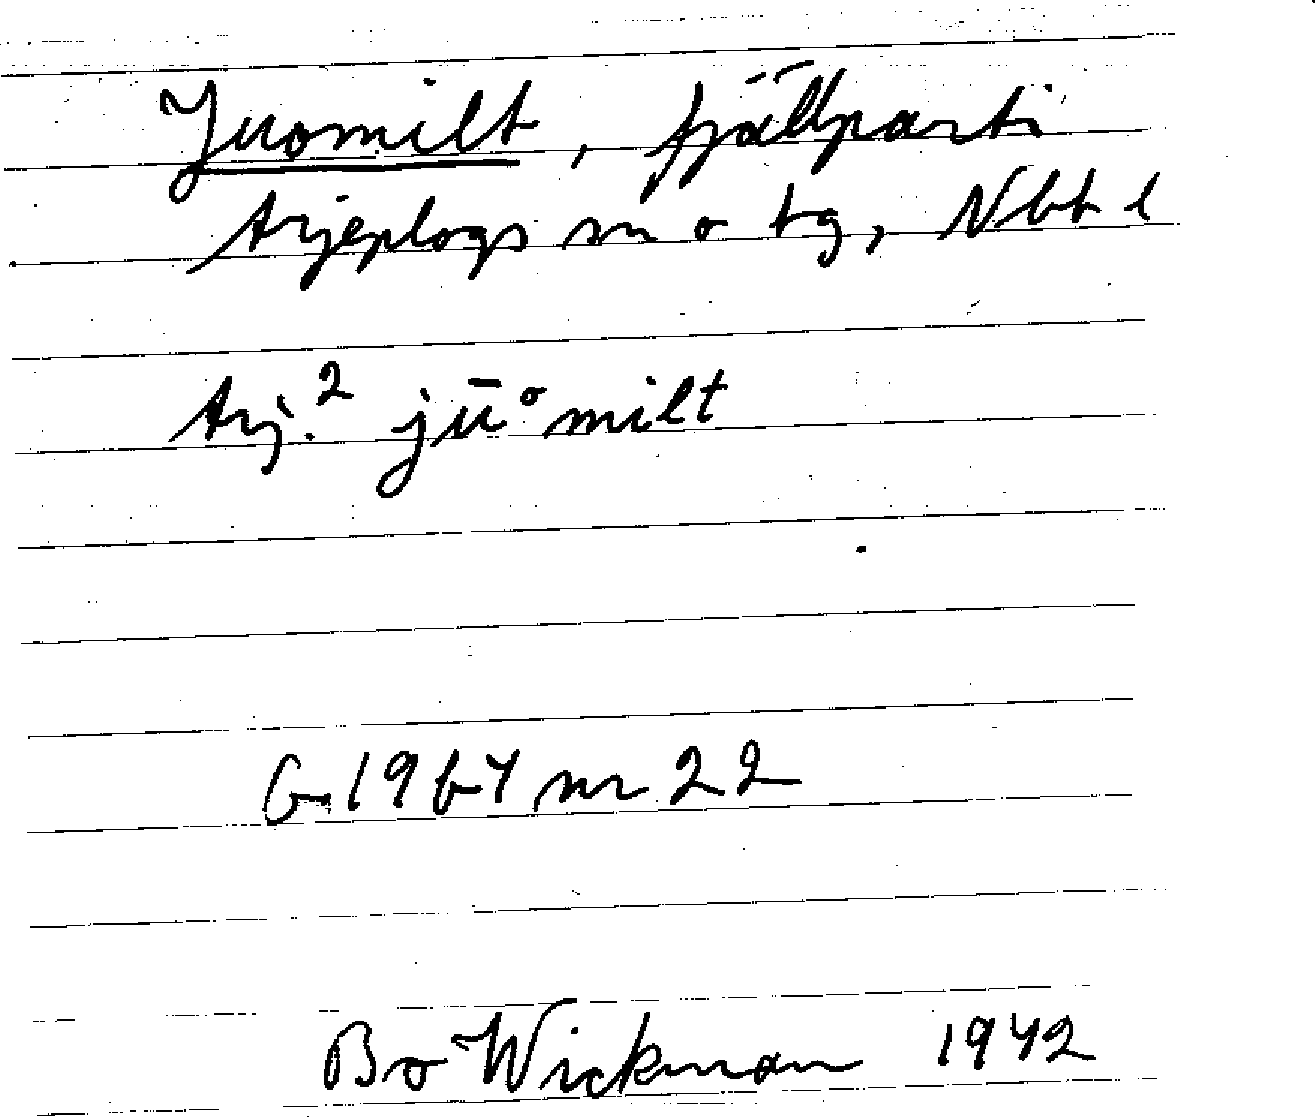 Juomilt, fjällparti
Arjeplogs sn o tg, Nbt l
Arj.² jūᵒmilt
G 1964 nr 22
Bo Wickman 1942